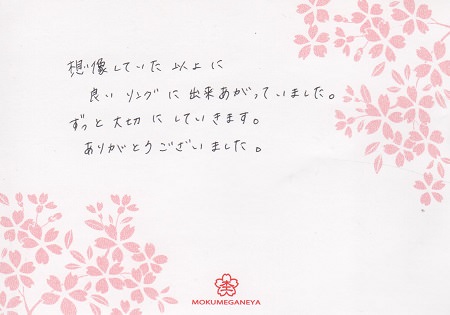 想像していた以上に
良いリングに出来あがっていました。
ずっと大切にしていきます。
ありがとうございました。
MOKUMEGANEYA